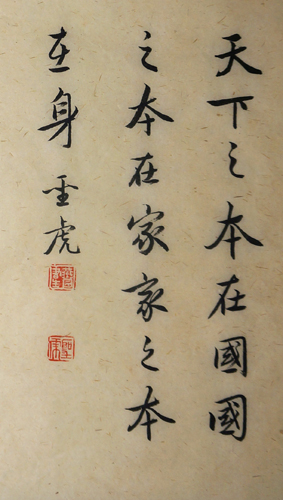 天下之本在國國
之本在家家之本
在身 圣虎